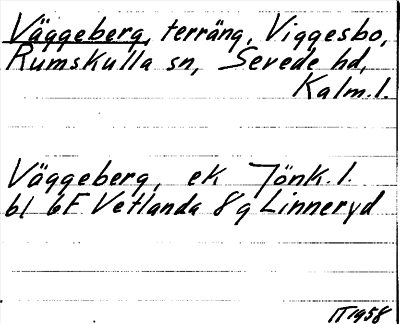 Väggeberg, terräng, Viggesbo,
Rumskulla sn, Sevede hd,
Kalm. l.
Väggeberg, ek Jönk. l.
bl 6F Vetlanda 8g Linneryd
IT 1958